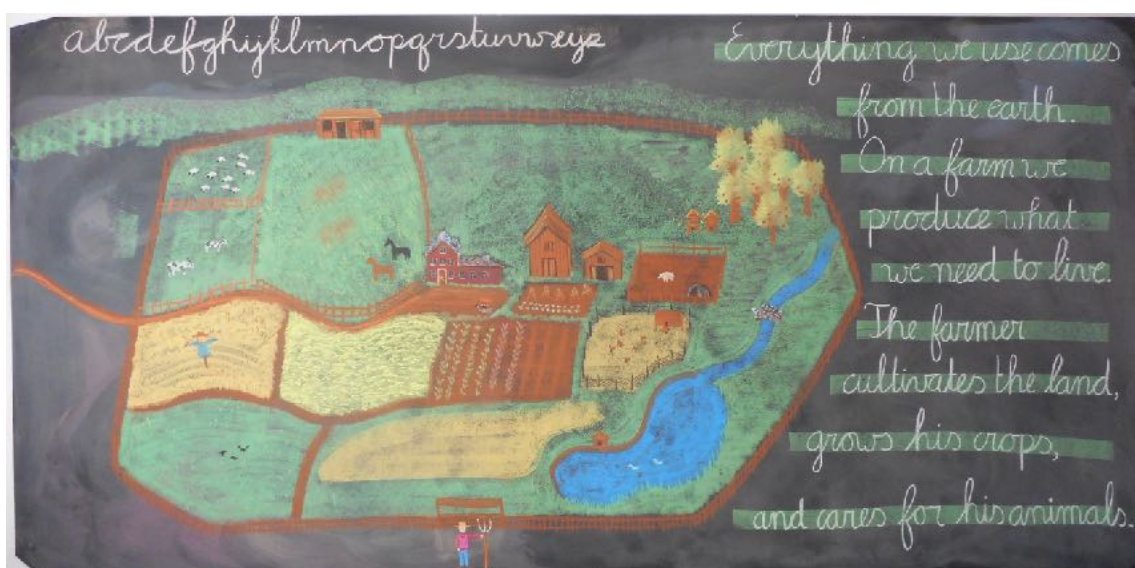 abcdefghijklmnopqrstuvwxyz
Everything we use comes
from the earth.
On a farm we
produce what
we need to live.
The farmer
cultivates the land,
grows his crops,
and cares for his animals.